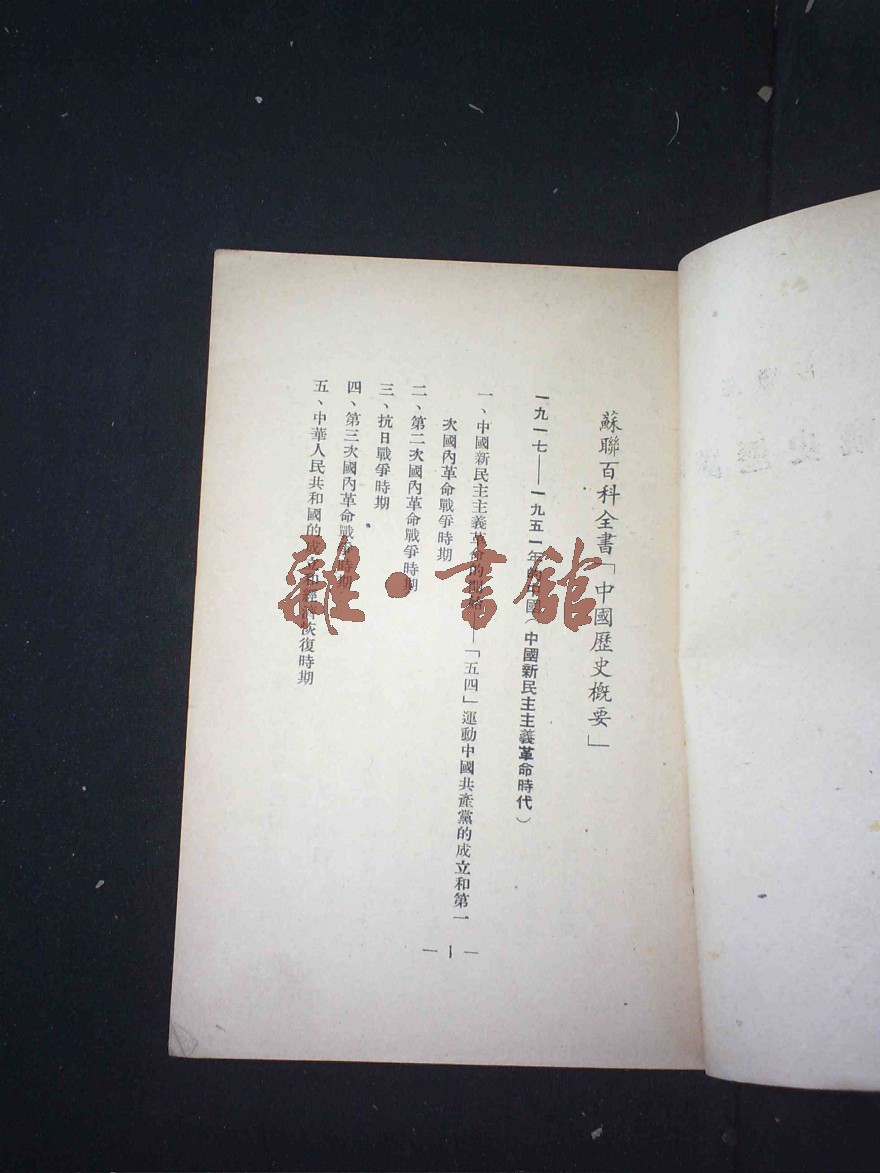 蘇聯百科全書「中國歷史概要」
一九一七——一九五一年的中國（中國新民主主義革命時代）
一、中國新民主主義革命的開始——「五四」運動中國共產黨的成立和第一
次國內革命戰爭時期
二、第二次國內革命戰爭時期
三、抗日戰爭時期
四、第三次國內革命戰爭時期
五、中華人民共和國的成立和經濟恢復時期
— 1 —
雜·書館